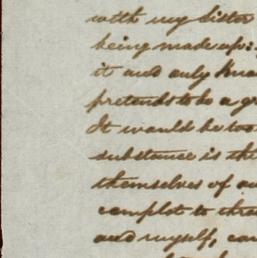 with my sister
being made up:
it and only
pretends to be a
It would be too
substance is the
themselves of
complot to
and myself,